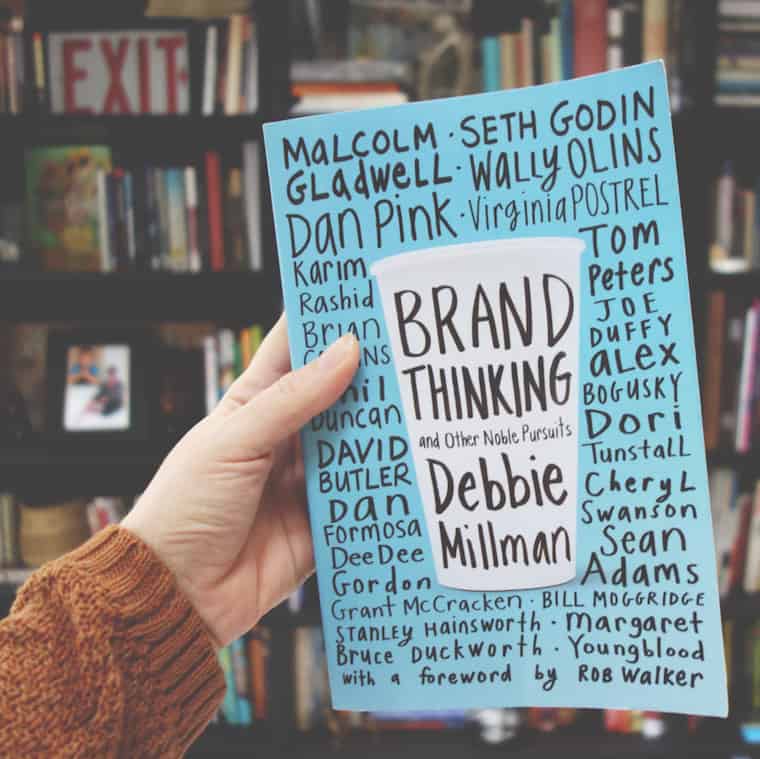 EXIT
MALCOLM · SETH GODIN
GLADWELL · WALLY OLINS
Dan Pink · Virginia POSTREL
Karim
Rashid
Brian
Duncan
DAVID
BUTLER
Dan
Formosa
DeeDee
Gordon
TOM
Peters
JOE
DUFFY
alex
BOGUSKY
Dori
Tunstall
Cheryl
Swanson
Sean
Adams
BRAND
THINKING
and Other Noble Pursuits
Debbie
Millman
Grant McCracken · BILL MOGGRIDGE
STANLEY HAINSWORTH · Margaret
Bruce Duckworth · Youngblood
with a foreword by ROB WALKER